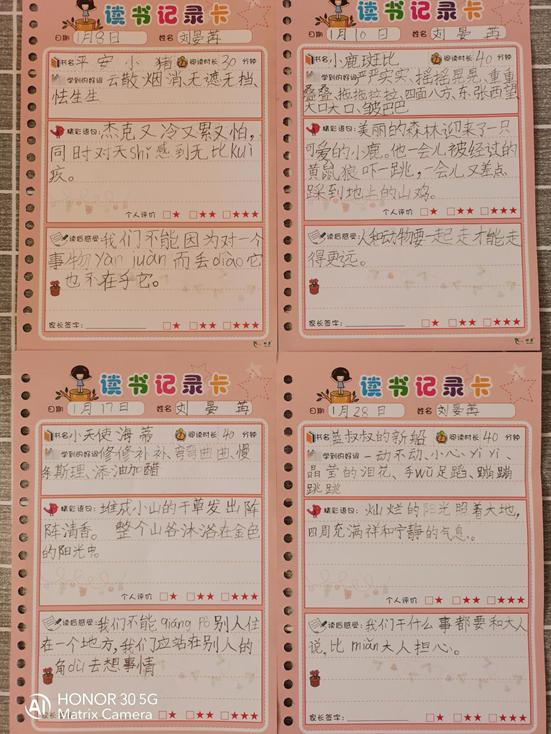 读书记录卡
日期 1月8日 姓名 刘晏苒
书名 平安小猪 阅读时长 30 分钟
学到的好词 云散烟消、无遮无挡、
怯生生
精彩语句: 杰克又冷又累又怕,
同时对天shǐ感到无比kuì
疚。
个人评价 ★ ★★ ★★★
读后感受: 我们不能因为对一个
事物yàn juàn而丢diào它
也不在乎它。
家长签字: ★ ★★ ★★★
读书记录卡
日期 1月10日 姓名 刘晏苒
书名 小鹿斑比 阅读时长 40 分钟
学到的好词 严严实实、摇摇晃晃、重重
叠叠、拖拖拉拉、四面八方、东张西望
大口大口、皱巴巴
精彩语句: 美丽的森林迎来了一只
可爱的小鹿。他一会儿被经过的
黄鼠狼吓一跳,一会儿又差点
踩到地上的山鸡。
个人评价 ★ ★★ ★★★
读后感受: 人和动物要一起走才能走
得更远。
家长签字: ★ ★★ ★★★
读书记录卡
日期 1月17日 姓名 刘晏苒
书名 小天使海蒂 阅读时长 40 分钟
学到的好词 修修补补、弯弯曲曲、慢
条斯理、添油加醋
精彩语句: 堆成小山的干草发出阵
阵清香。 整个山谷沐浴在金色
的阳光中。
个人评价 ★ ★★ ★★★
读后感受: 我们不能qiǎng Pò别人住
在一个地方,我们应站在别人的
角dù去想事情
家长签字: ★ ★★ ★★★
读书记录卡
日期 1月28日 姓名 刘晏苒
书名 蓝叔叔的新 阅读时长 40 分钟
学到的好词 一动不动、小心yì yì、
晶莹的泪花、手wǔ足蹈、蹦蹦
跳跳
精彩语句: 灿烂的阳光照着大地,
四周充满祥和宁静的气息。
个人评价 ★ ★★ ★★★
读后感受: 我们干什么事都要和大人
说,比miǎn大人担心。
家长签字: ★ ★★ ★★★
AI HONOR 30 5G
Matrix Camera